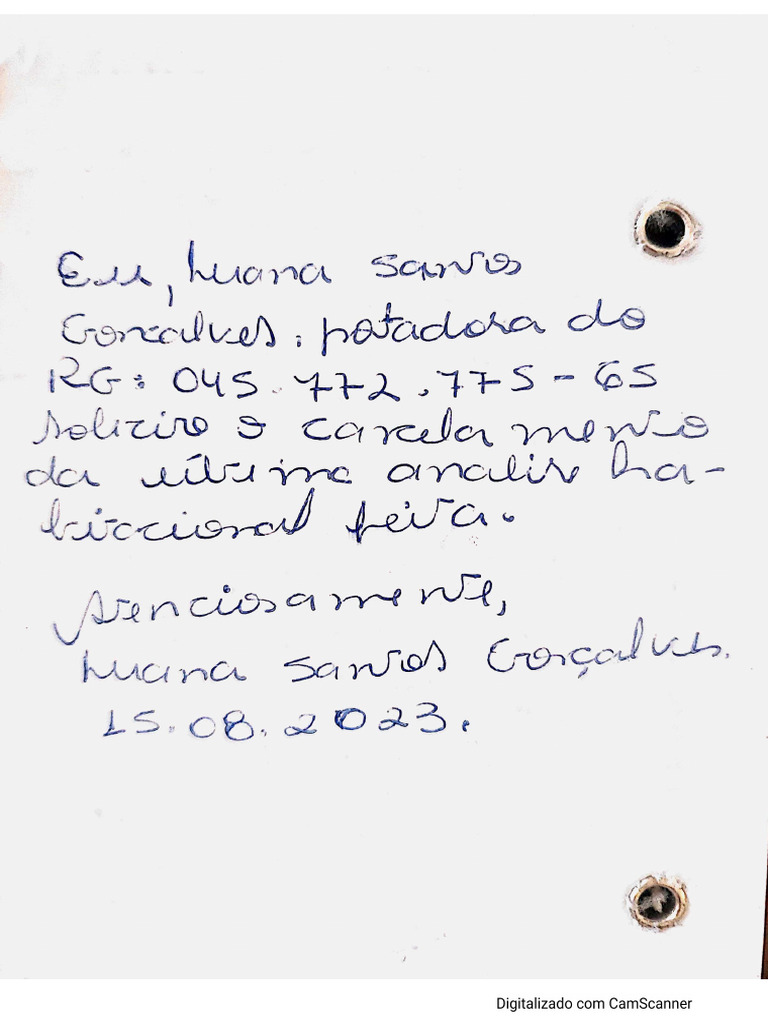 Eu, Luana Santos
Gonçalves, potadora do
RG: 045.772.775-65
Solicito o cancelamento
da última analise ha-
bitacional feita.
Atenciosamente,
Luana Santos Gonçalves.
15.08.2023.
Digitalizado com CamScanner